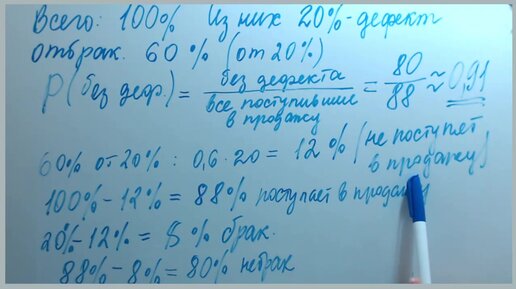 Всего: 100% Из них 20%-дефект
отбрак. 60% (от 20%)
P(без деф.) = без дефекта / все поступившие в продажу = 80/88 ≈ 0,91
60% от 20% : 0,6·20 = 12% (не поступят в продажу)
100%-12% = 88% поступает в продажу
20%-12% = 8% брак.
88%-8% = 80% небрак